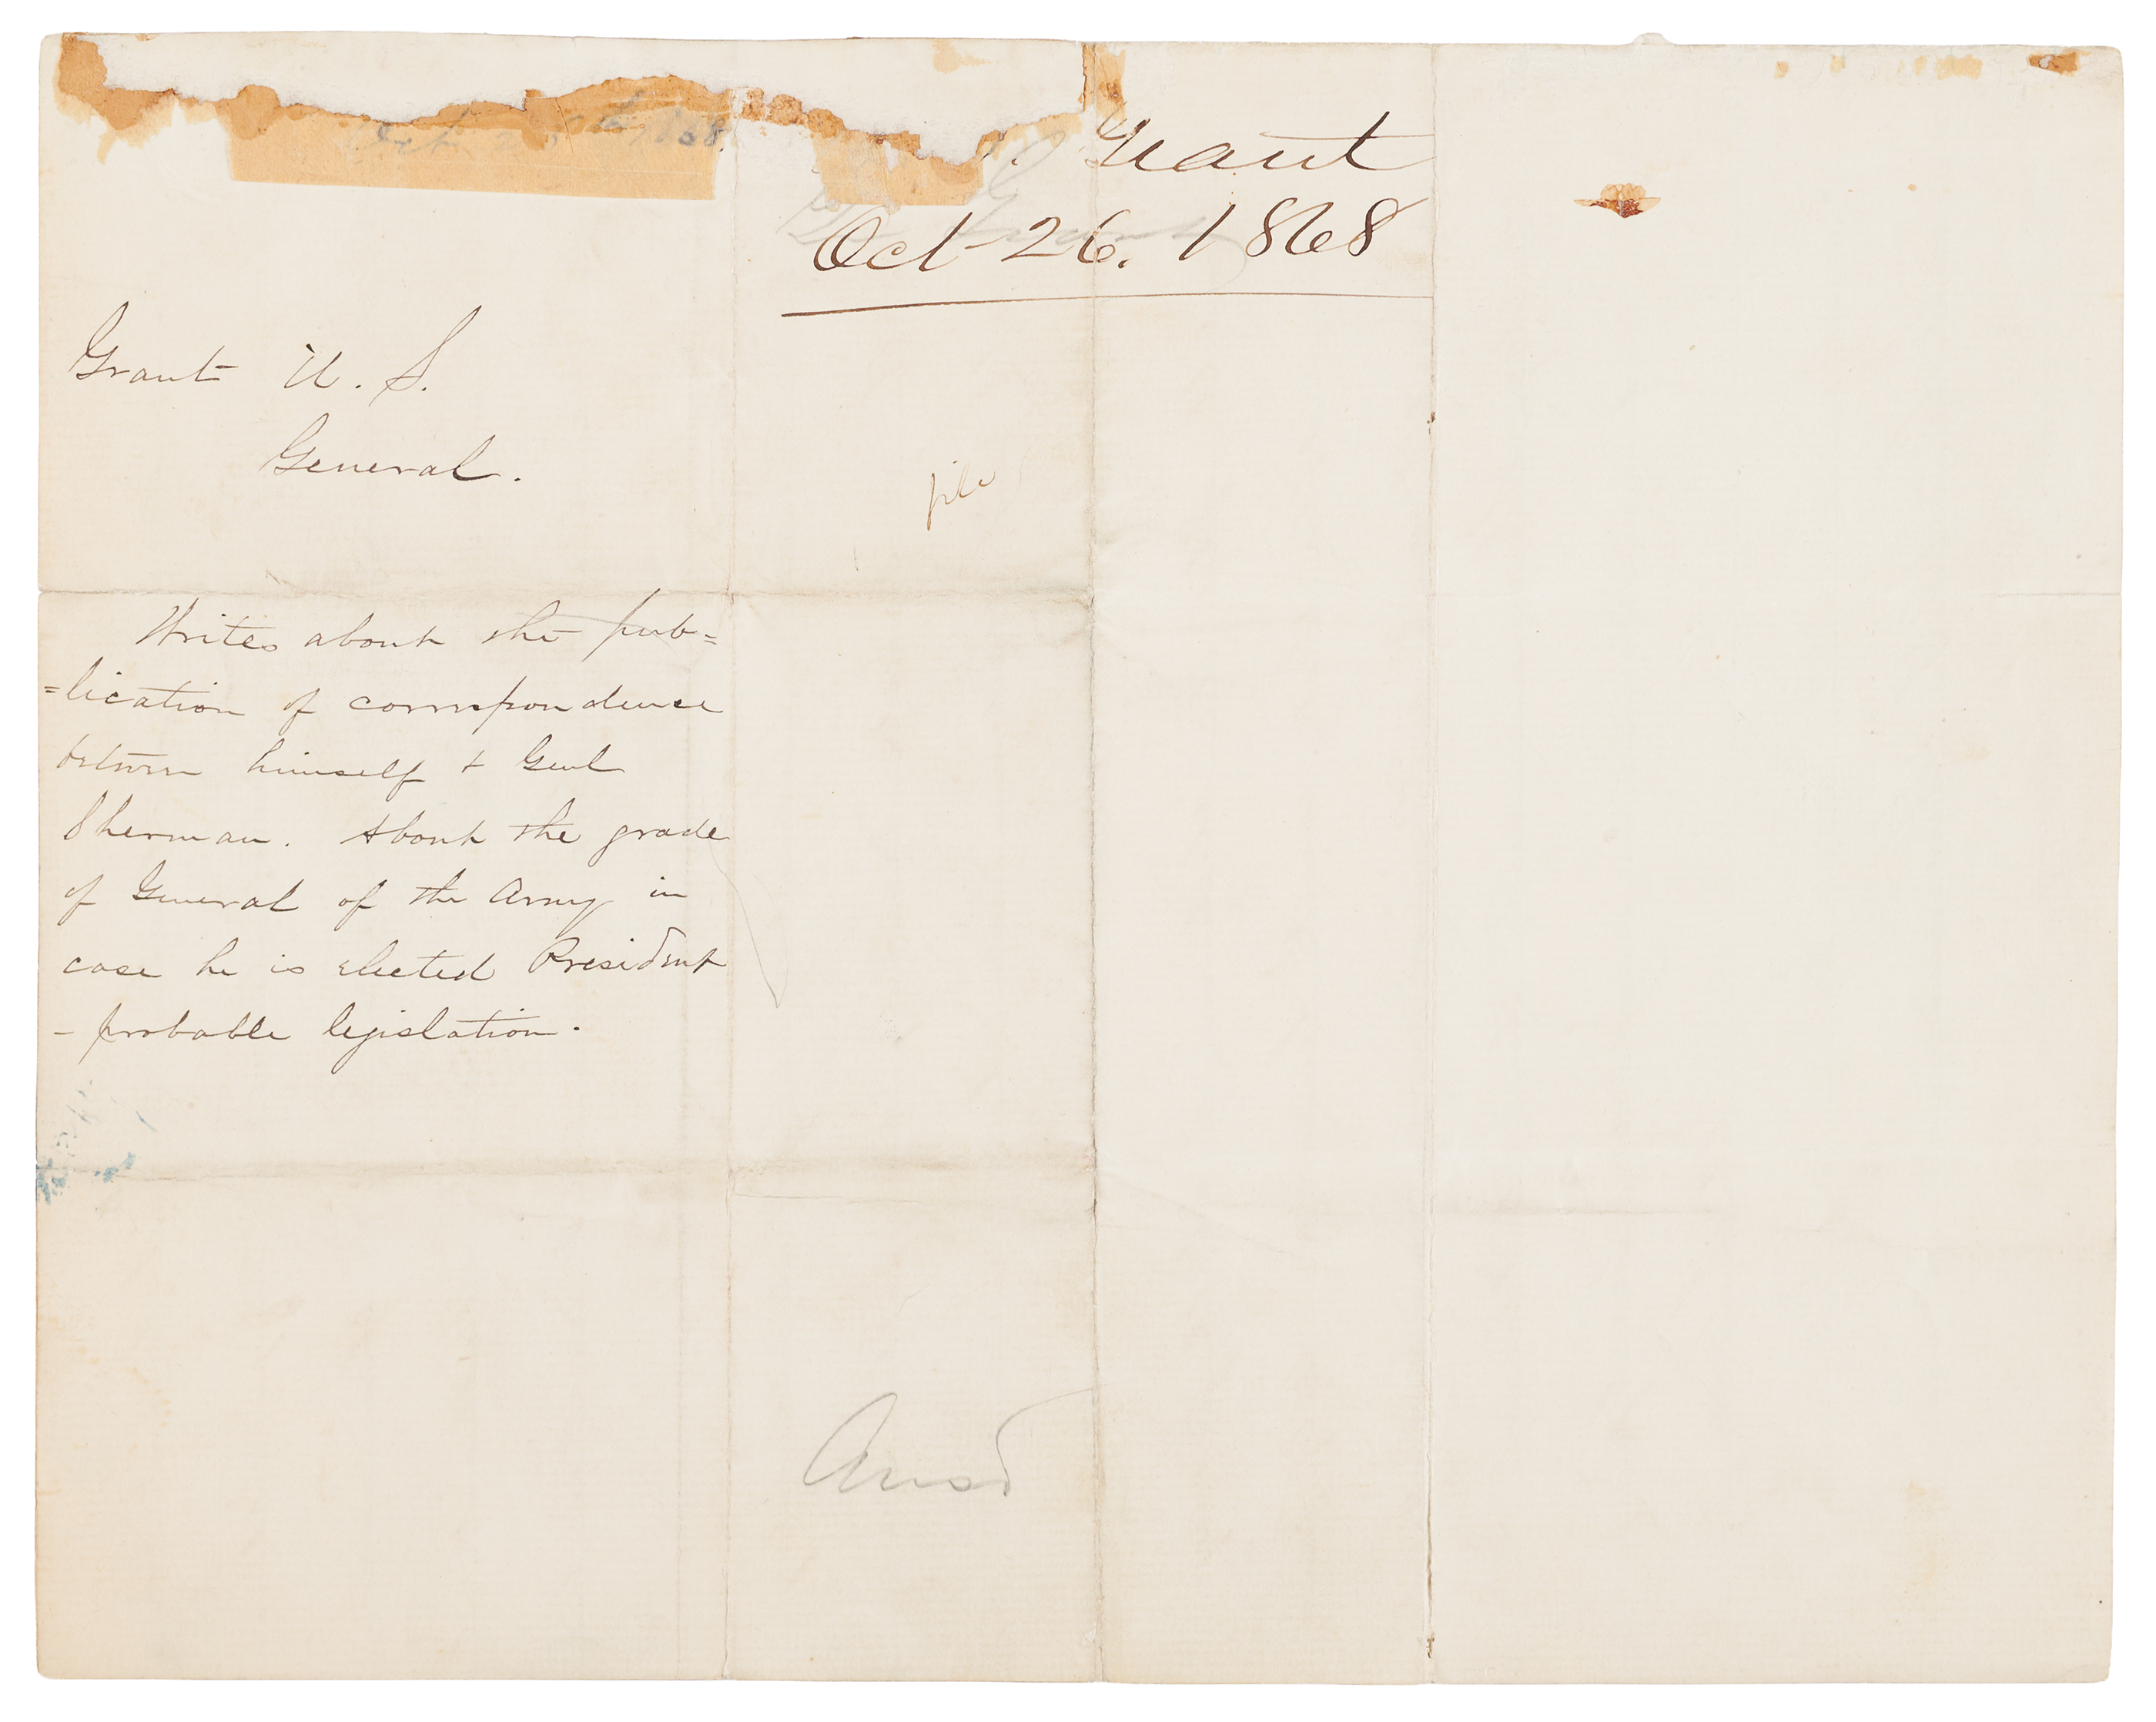 1868
Grant
Oct 26. 1868
Grant U. S.
General.
file
Writes about the pub=
=lication of correspondence
between himself & Genl
Sherman. About the grade
of General of the Army in
case he is elected President
- probable legislation.
Ansd